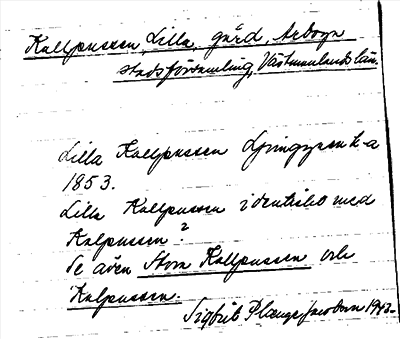 Kallpussen, Lilla, gård, Arboga
stadsförsamling, Västmanlands län.
Lilla Kallpussen
1853.
Lilla Kallpussen identisk med
Kalpussen?
Se även Stora Kallpussen och
Kalpussen.
Sigfrid 1943